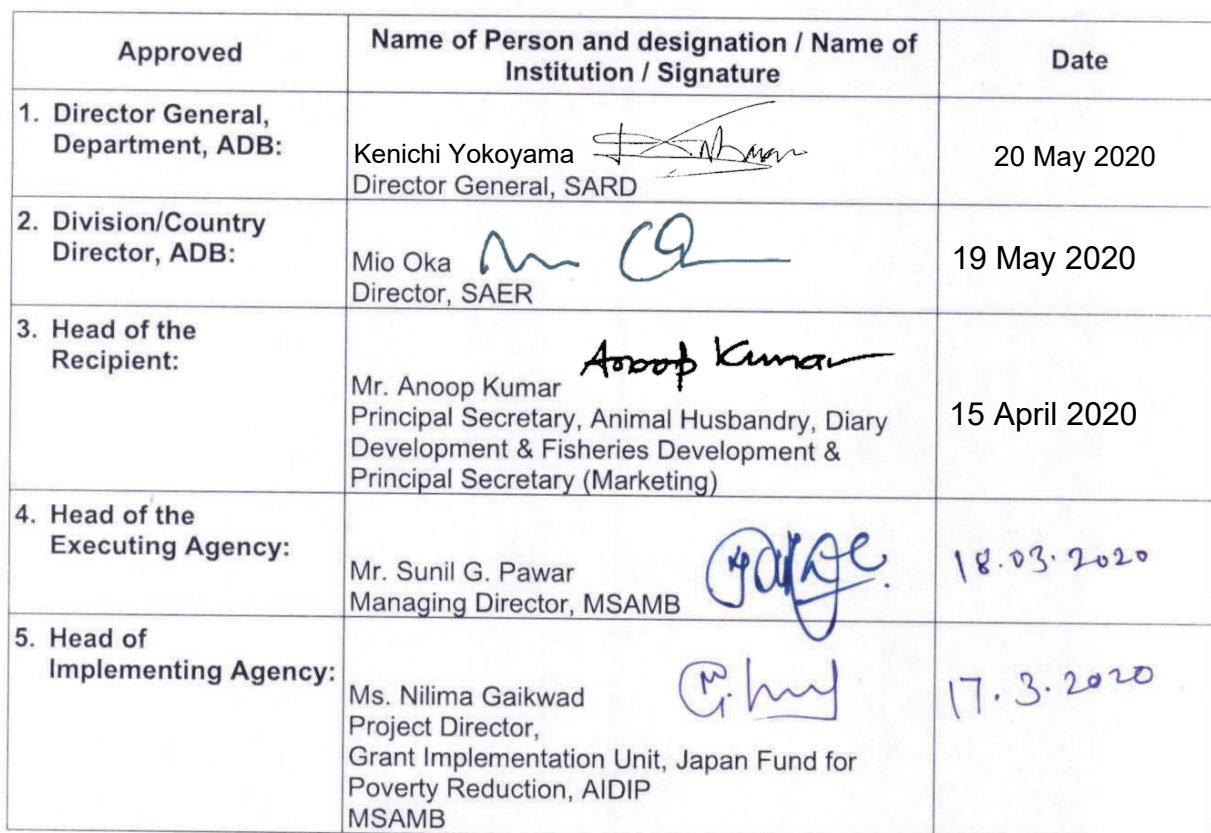 Approved
Name of Person and designation / Name of
Institution / Signature
Date
1. Director General,
Department, ADB:
Kenichi Yokoyama
Director General, SARD
20 May 2020
2. Division/Country
Director, ADB:
Mio Oka
Director, SAER
19 May 2020
3. Head of the
Recipient:
Anoop Kumar
Mr. Anoop Kumar
Principal Secretary, Animal Husbandry, Diary
Development & Fisheries Development &
Principal Secretary (Marketing)
15 April 2020
4. Head of the
Executing Agency:
Mr. Sunil G. Pawar
Managing Director, MSAMB
18.03.2020
5. Head of
Implementing Agency:
Ms. Nilima Gaikwad
Project Director,
Grant Implementation Unit, Japan Fund for
Poverty Reduction, AIDIP
MSAMB
17.3.2020